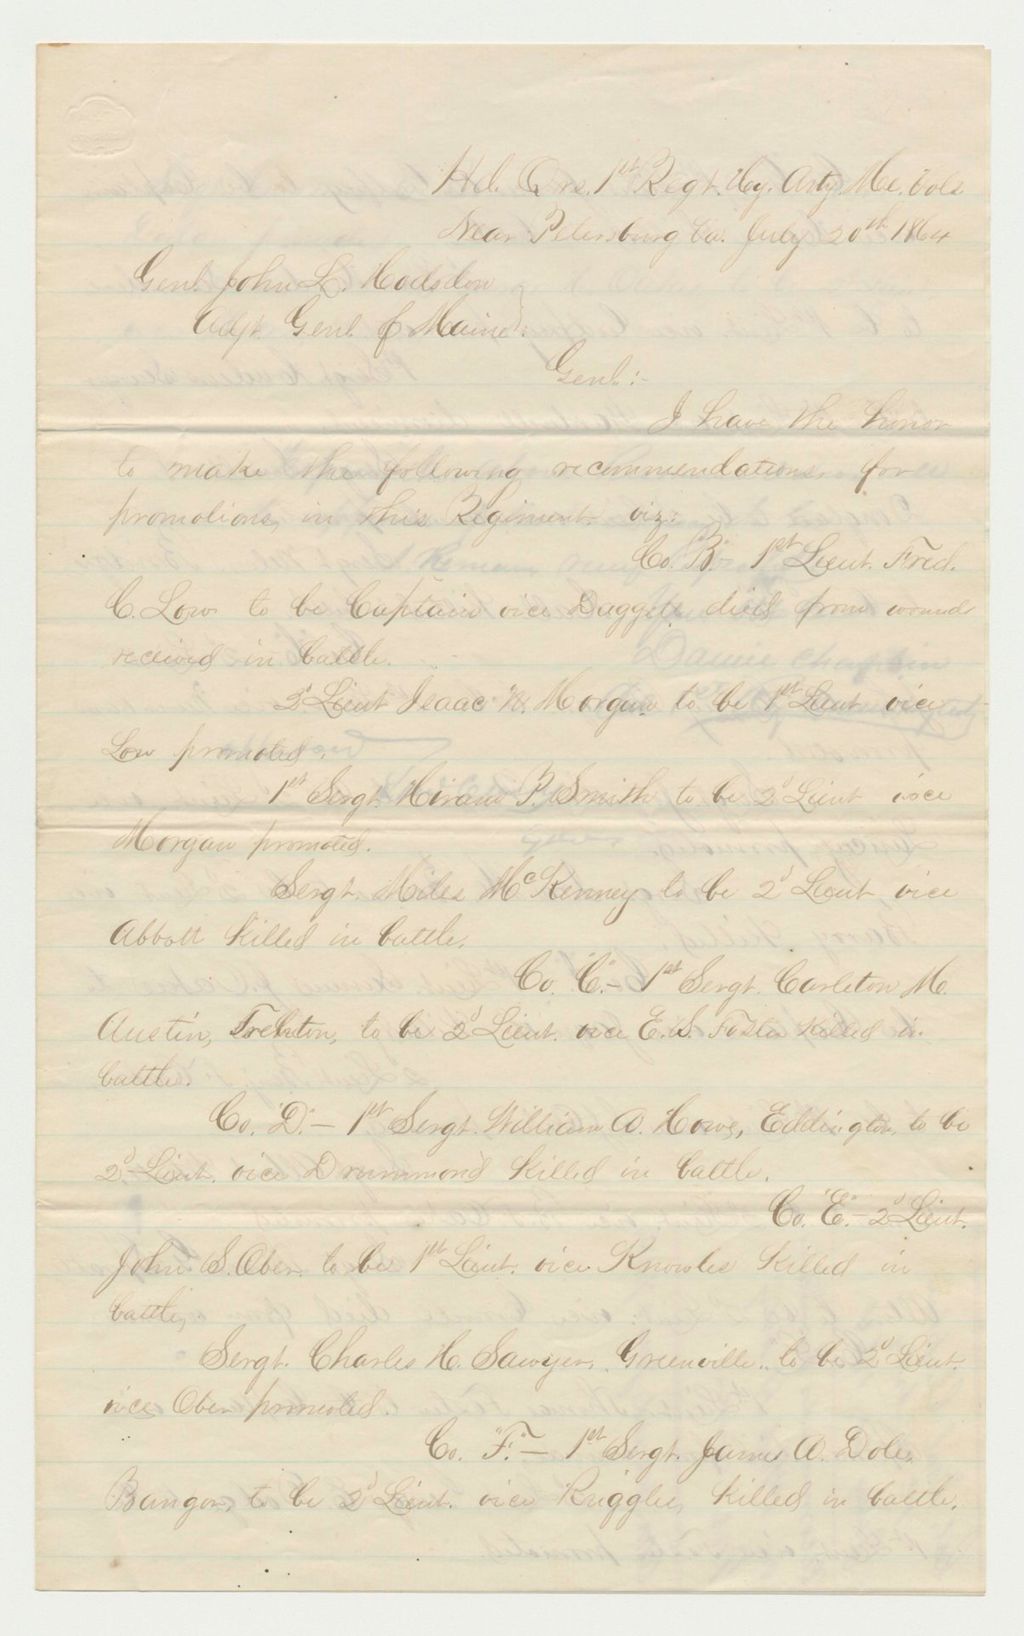 Hd. Qrs. 1st Regt. Hy. Arty. Me. Vols
Near Petersburg Va. July 20th 1864
Genl. John L. Hodsdon
Adjt. Genl. of Maine:
Genl:-
I have the honor
to make the following recommendations for
promotions, in this Regiment viz:
Co. "B."- 1st Lieut. Fred.
C. Low to be Captain vice Daggett died from wounds
received in battle.
2d Lieut Isaac N. Morgan to be 1st Lieut vice
Low promoted.
1st Sergt. Hiram P. Smith to be 2d Lieut vice
Morgan promoted.
Sergt. Miles McKenney to be 2d Lieut vice
Abbott killed in battle.
Co. "C."- 1st Sergt. Carleton M.
Austin, Trenton, to be 2d Lieut. vice E. S. Foster killed in
battle.
Co. "D."- 1st Sergt. William A. Howe, Eddington, to be
2d Lieut. vice Drummond killed in battle.
Co. "E."- 2d Lieut.
John S. Ober, to be 1st Lieut. vice Knowles killed in
battle,
Sergt. Charles H. Sawyer, Greenville, to be 2d Lieut.
vice Ober promoted.
Co. "F."- 1st Sergt. James A. Dole,
Bangor, to be 2d Lieut. vice Ruggles, killed in battle.